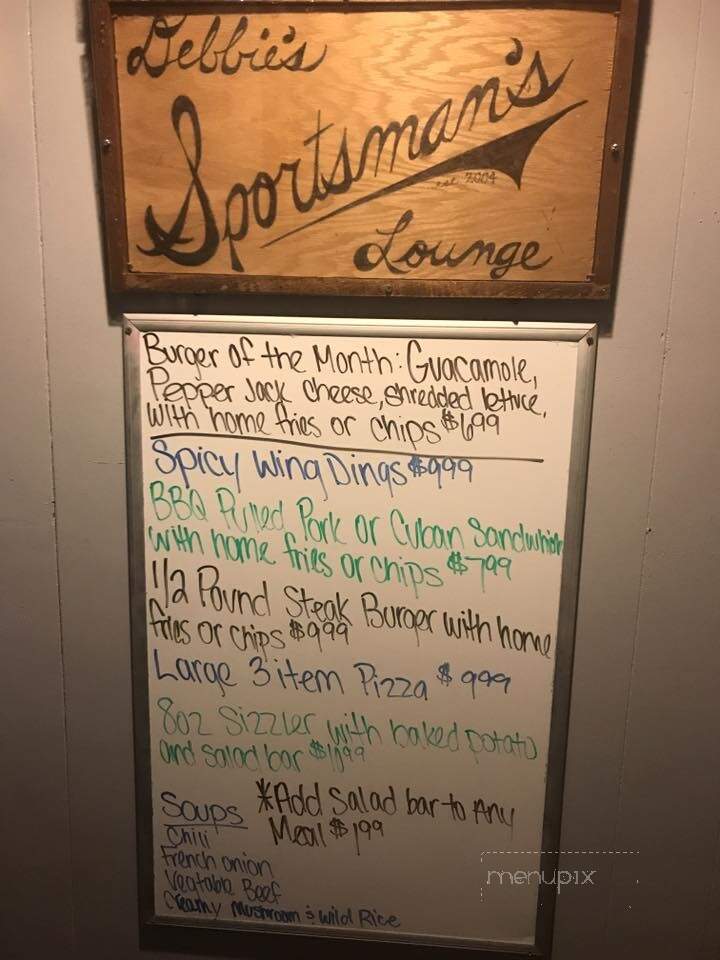 Debbie's
Sportsman's
est 2004
Lounge
Burger of the Month: Guacamole,
Pepper Jack cheese, shredded lettuce,
with home fries or chips $699
Spicy Wing Dings $999
BBQ Pulled Pork or Cuban Sandwhich
with home fries or chips $799
1/2 Pound Steak Burger with home
fries or chips $999
Large 3 item Pizza $999
8oz Sizzler with baked potato
and salad bar $1099
Soups *Add Salad bar to Any
Meal $199
Chili
French onion
Vegtable Beef
Creamy Mushroom & Wild Rice
menupix